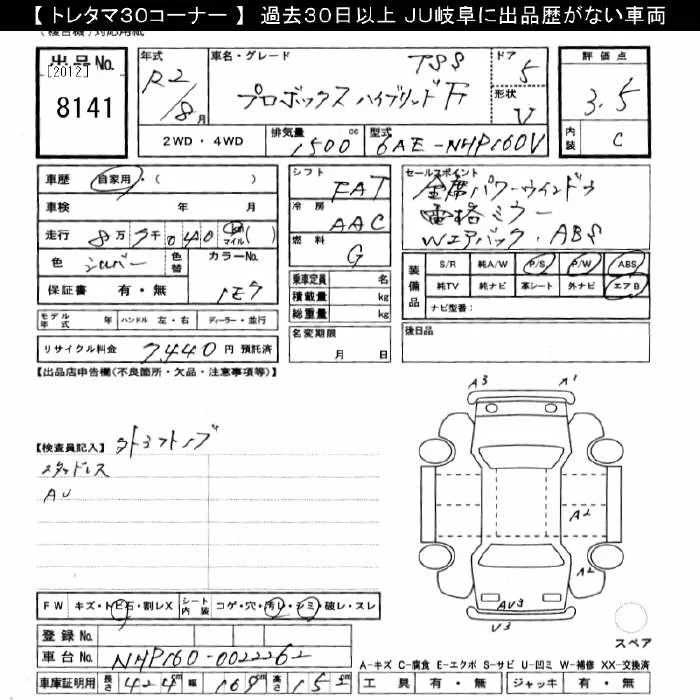 【 トレタマ30コーナー 】 過去30日以上 JU岐阜に出品歴がない車両
出品No.
[2012]
8141
年式
R2/8月
車名・グレード
TSS
プロボックスハイブリッド F
ドア
5
形状
V
評価点
3.5
内装
C
2WD・4WD
排気量
1500 cc
型式
6AE-NHP160V
車歴 自家用・( )
車検 年 月
走行 8万7千040 km マイル ( )
色 シルバー 色替 カラーNo. 1E7
保証書 有・無
シフト FAT
冷房 AAC
燃料 G
乗車定員 名
積載量 kg
総重量 kg
セールスポイント
全席パワーウインドウ
電格ミラー
Wエアバック・ABS
装備品
S/R 純A/W P/S P/W ABS
純TV 純ナビ 革シート 外ナビ エアB
ナビ型番:
モデル年式 年 ハンドル 左・右 ディーラー・並行
名変期限 月 日
後日品
リサイクル料金 7440 円 預託済
【出品店申告欄(不良箇所・欠品・注意事項等)】
【検査員記入】
スタッドレス
AU
A3 A1
A2
A2
AV3
V3
スペア
FW キズ・トビ石・割レX シート内装 コゲ・穴・汚レ・シミ・破レ・スレ
登録No.
車台No. NHP160-0022262
A-キズ C-腐食 E-エクボ S-サビ U-凹ミ W-補修 XX-交換済
車庫証明用 長さ 424 cm 幅 169 cm 高さ 152 cm
工具 有・無 ジャッキ 有・無